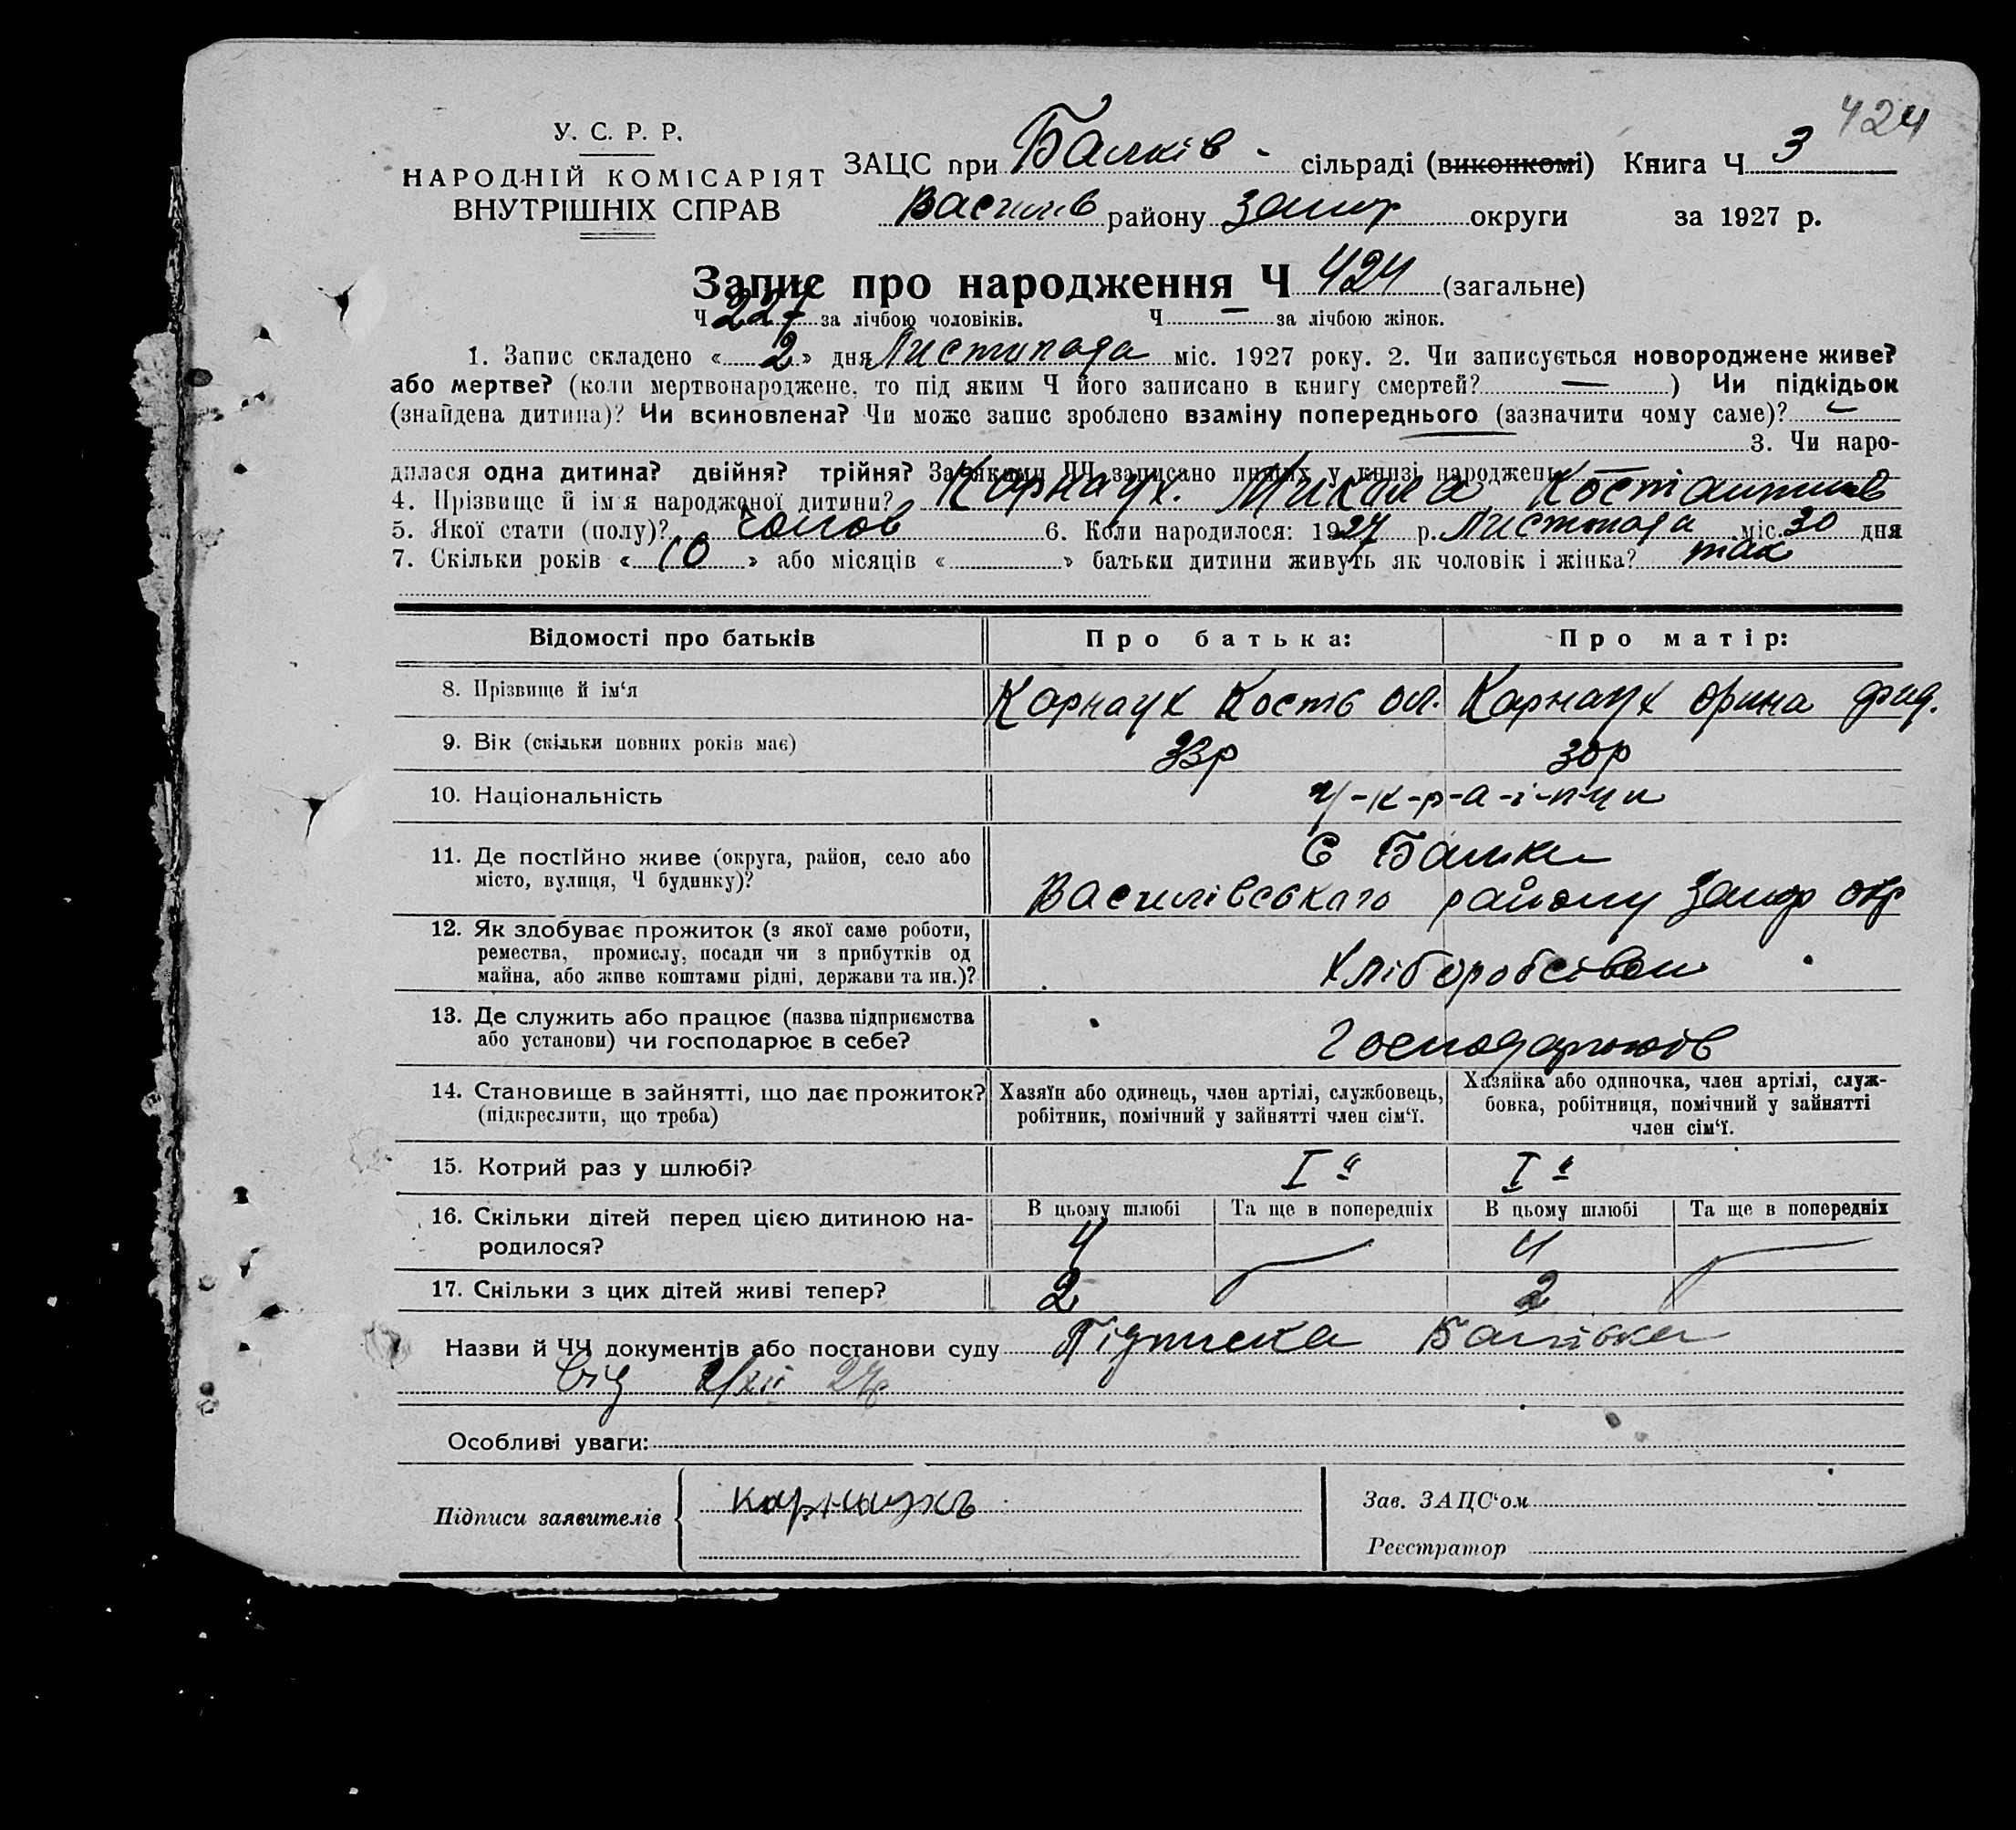 424
У. С. Р. Р.
НАРОДНІЙ КОМІСАРІЯТ
ВНУТРІШНІХ СПРАВ
ЗАЦС при Балків - сільраді (виконкомі) Книга Ч 3
Василів району Запор округи за 1927 р.
Запис про народження Ч 424 (загальне)
Ч 227 за лічбою чоловіків. Ч — за лічбою жінок.
1. Запис складено « 2 » дня Листопада міс. 1927 року. 2. Чи записується новороджене живе?
або мертве? (коли мертвонароджене, то під яким Ч його записано в книгу смертей? — ) Чи підкідьок
(знайдена дитина)? Чи всиновлена? Чи може запис зроблено взаміну попереднього (зазначити чому саме)?
3. Чи наро-
дилася одна дитина? двійня? трійня? За якими ЧЧ записано инших у книзі народжень
4. Прізвище й ім'я народженої дитини? Карнаух. Микола Костантинів
5. Якої стати (полу)? чолов 6. Коли народилося: 1927 р. Листопада міс. 30 дня
7. Скільки років « 10 » або місяців « » батьки дитини живуть як чоловік і жінка? так
Відомості про батьків Про батька: Про матір:
8. Прізвище й ім'я Карнаух Кость Ол. Карнаух Орина
9. Вік (скільки повних років має) 33р 30р
10. Національність у-к-р-а-ї-н-ци
11. Де постійно живе (округа, район, село або
місто, вулиця, Ч будинку)?
С Балки
Василівського району Запор окр
12. Як здобуває прожиток (з якої саме роботи,
ремества, промислу, посади чи з прибутків од
майна, або живе коштами рідні, держави та ин.)?
Хліборобсівом
13. Де служить або працює (назва підприємства
або установи) чи господарює в себе?
14. Становище в зайнятті, що дає прожиток?
(підкреслити, що треба)
Хазяїн або одинець, член артілі, службовець,
робітник, помічний у зайнятті член сім'ї.
Хазяйка або одиночка, член артілі, служ-
бовка, робітниця, помічний у зайнятті
член сім'ї.
15. Котрий раз у шлюбі? І й І й
16. Скільки дітей перед цією дитиною на-
родилося?
В цьому шлюбі Та ще в попередніх В цьому шлюбі Та ще в попередніх
4 4
17. Скільки з цих дітей живі тепер? 2 2
Назви й ЧЧ документів або постанови суду Підписка
від 2/XII 27р
Особливі уваги:
Підписи заявителів Карнаухъ
Зав. ЗАЦС'ом
Реєстратор